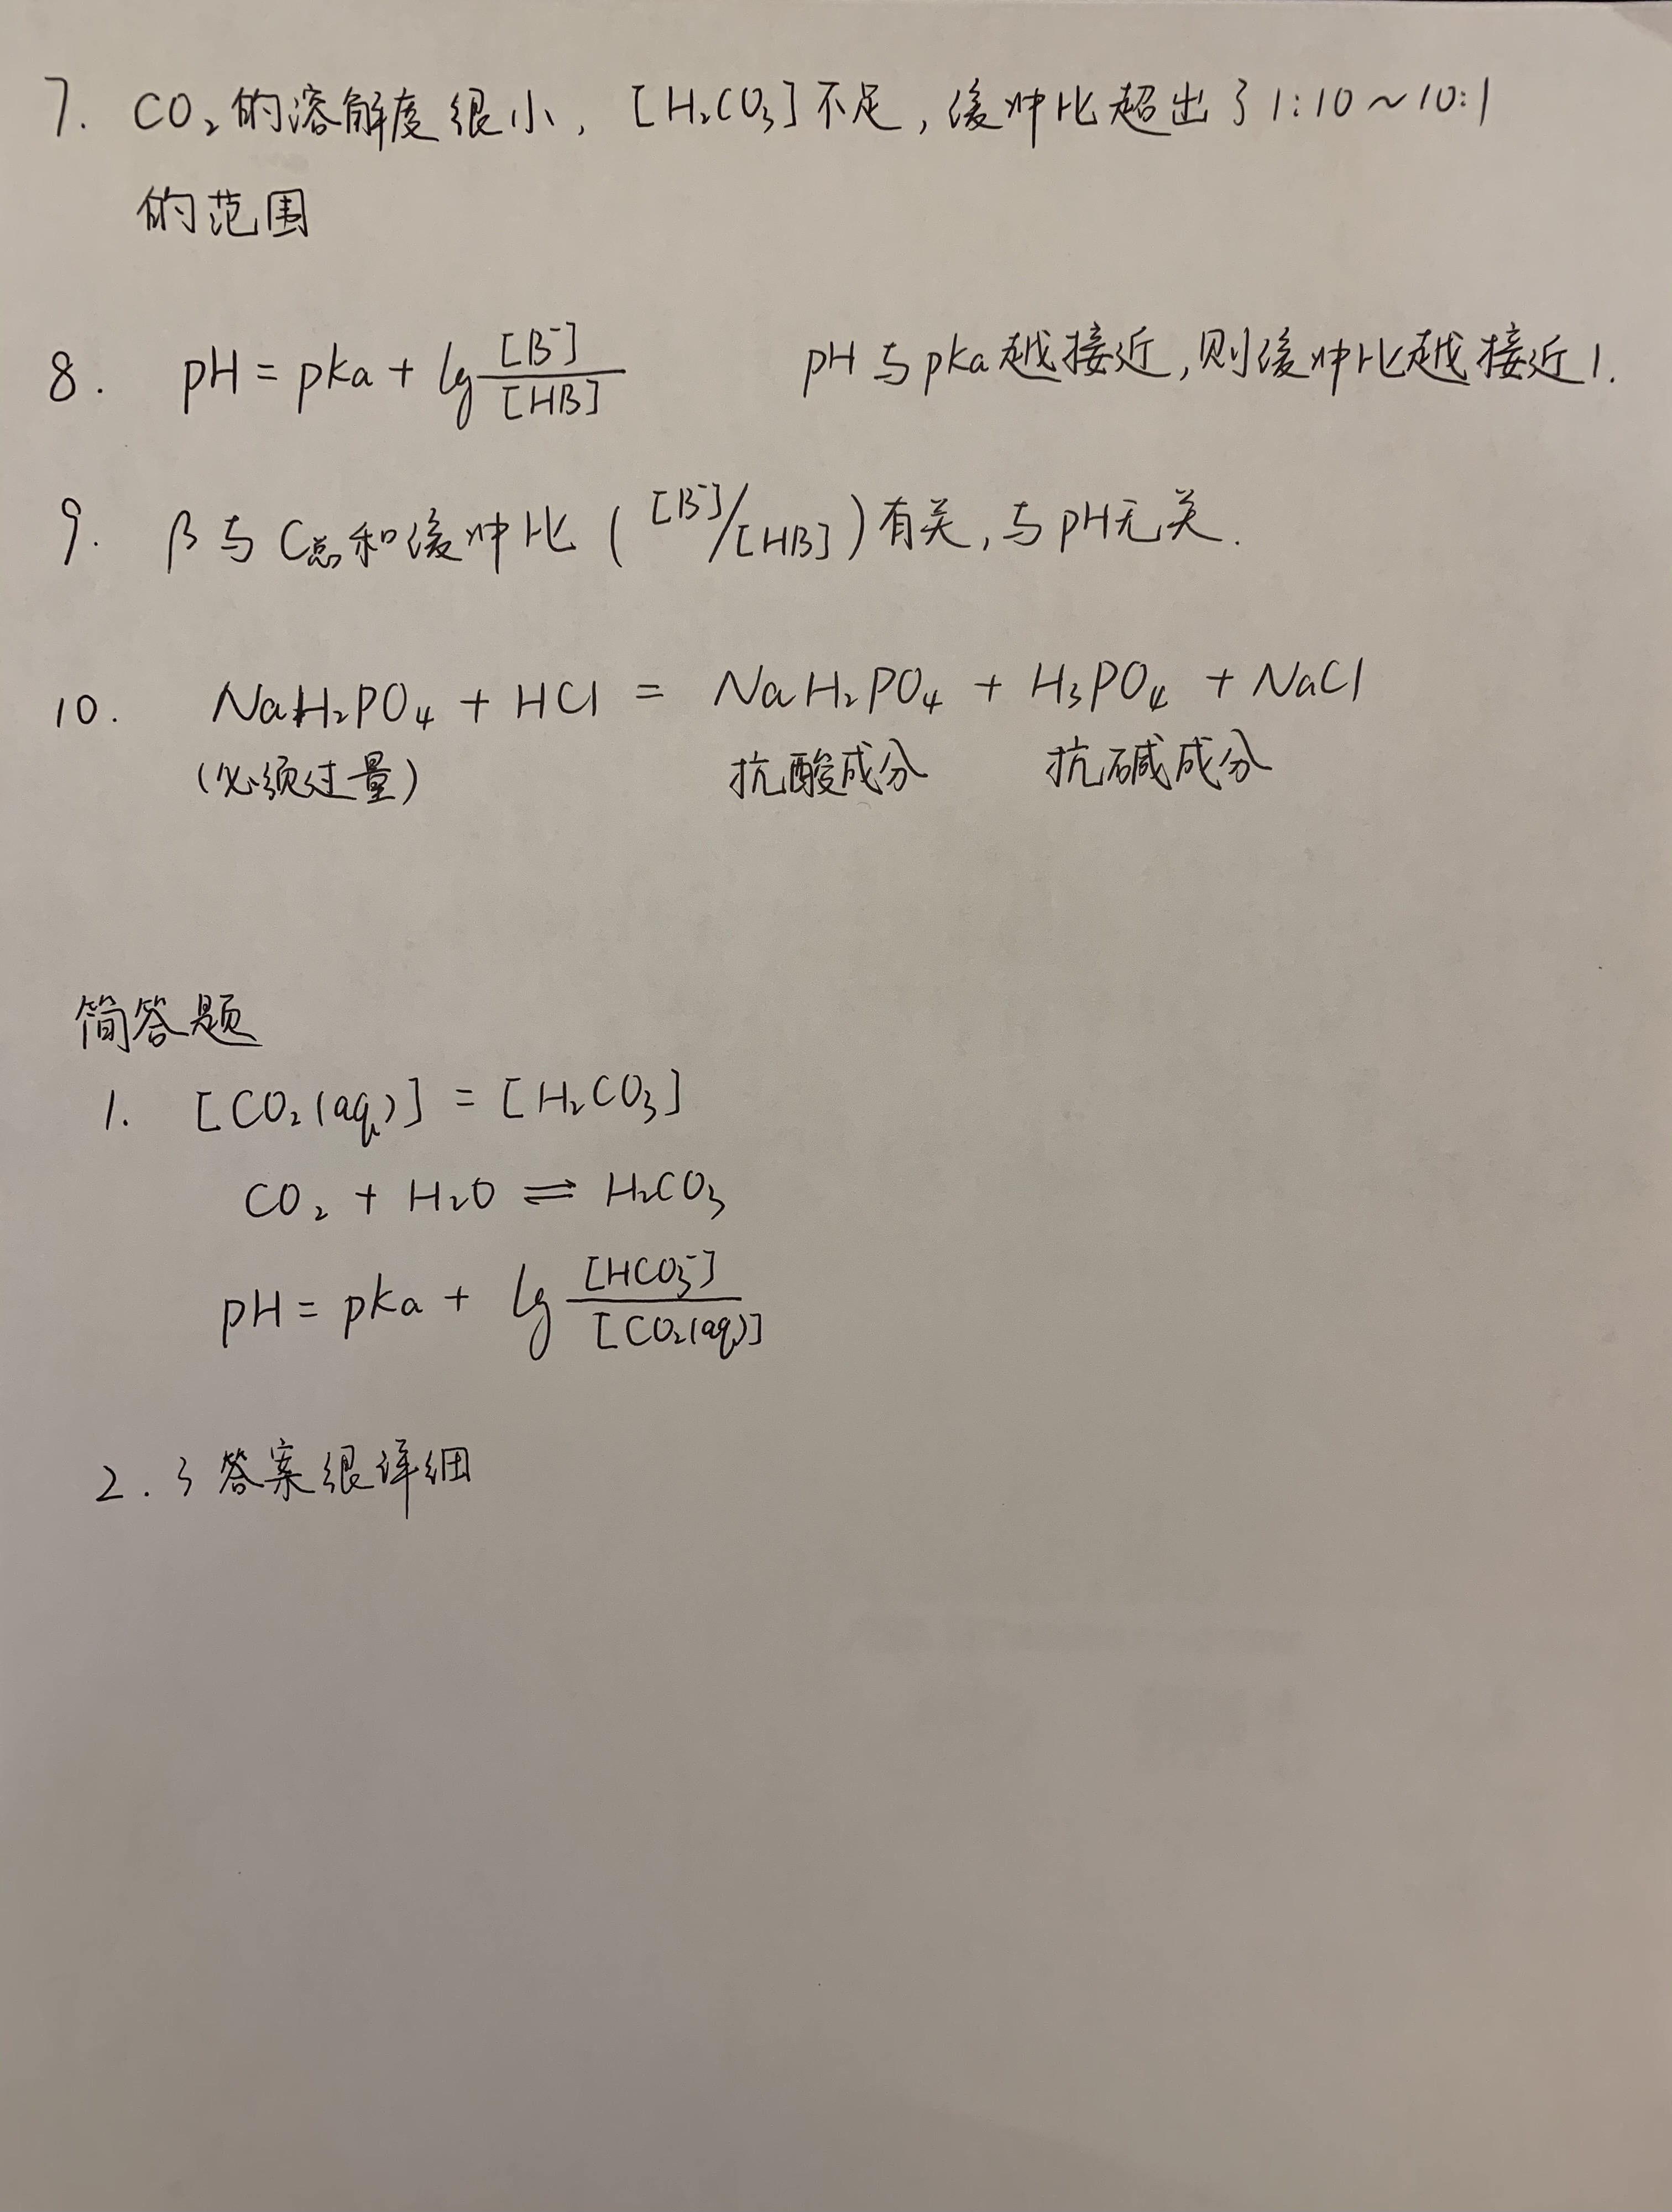 7. CO₂的溶解度很小, [H₂CO₃]不足, 缓冲比超出了1:10~10:1
的范围
8. pH = pka + lg [B⁻]/[HB] pH与pka越接近,则缓冲比越接近1.
9. β与C总和缓冲比 ([B⁻]/[HB])有关,与pH无关.
10. NaH₂PO₄ + HCl = NaH₂PO₄ + H₃PO₄ + NaCl
(必须过量) 抗酸成分 抗碱成分
简答题
1. [CO₂(aq)] = [H₂CO₃]
CO₂ + H₂O ⇌ H₂CO₃
pH = pka + lg [HCO₃⁻]/[CO₂(aq)]
2.3答案很详细